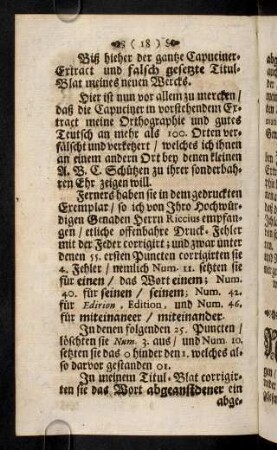 ( 18 )
Biß hieher der gantze Capuciner-
Extract und falsch gesetzte Titul-
Blat meines neuen Wercks.
Hier ist nun vor allem zu mercken /
daß die Capuciner in vorstehendem Ex-
tragt meine Orthographie und gutes
Teutsch an mehr als 100. Orten ver-
fälscht und verketzert / welches ich ihnen
an einem andern Ort bey denen kleinen
A. B. C. Schützen zu ihrer sonderbah-
ren Ehr zeigen will.
Ferners haben sie in dem gedruckten
Exemplar / so ich von Ihro Hochwür-
digen Genaden Herrn Riccius empfan-
gen / etliche offenbahre Druck-Fehler
mit der Feder corrigirt; und zwar unter
denen 55. ersten Puncten corrigirten sie
4. Fehler / nemlich Num. 11. setzten sie
für einen / das Wort einem; Num.
40. für seinen / seinem; Num. 42.
für Edirion, Edition, und Num. 46.
für miteinaneer / miteinander.
In denen folgenden 25. Puncten /
löschten sie Num. 3. aus / und Num. 10.
setzten sie das 0 hinder den 1. welches al-
so darvor gestanden 01.
In meinem Titul-Blat corrigir-
ten sie das Wort abgeansidener ein
abge-